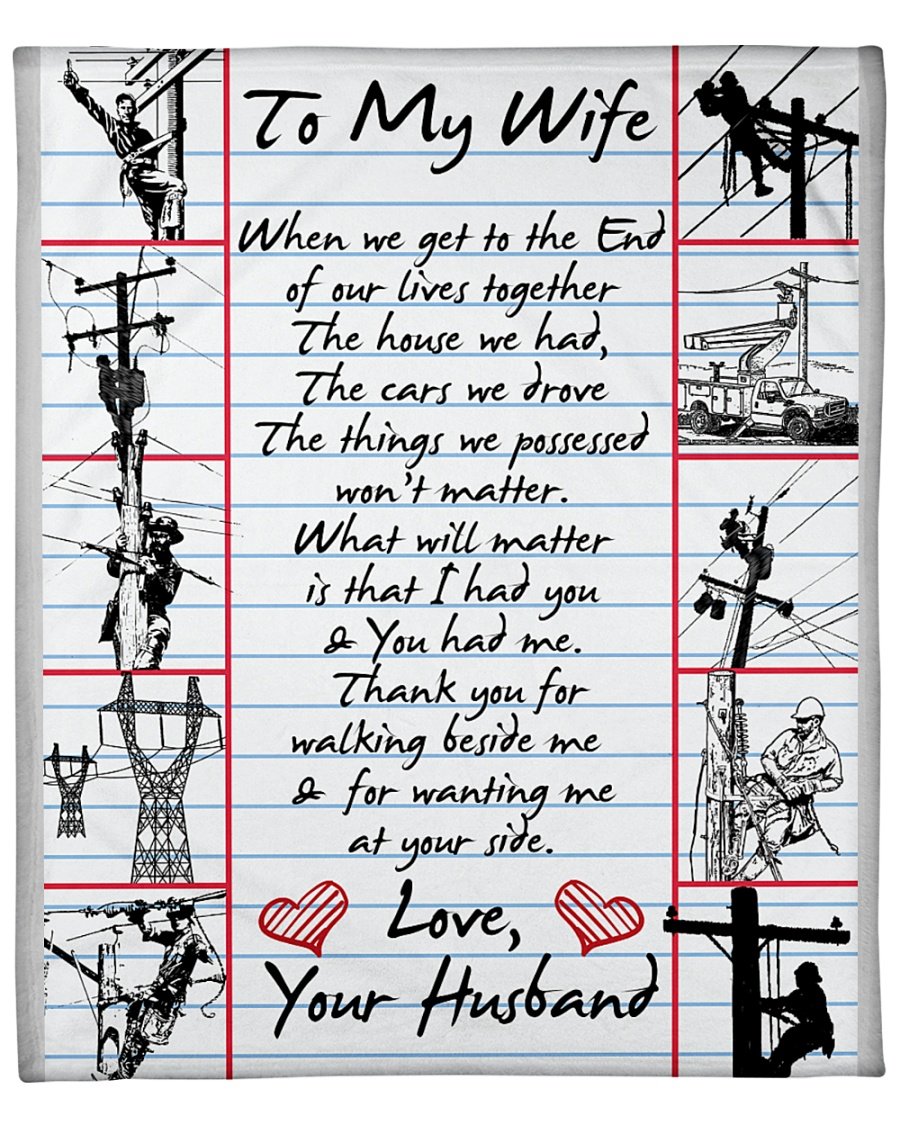 To My Wife
When we get to the End
of our lives together
The house we had,
The cars we drove
The things we possessed
won't matter.
What will matter
is that I had you
& You had me.
Thank you for
walking beside me
& for wanting me
at your side.
Love,
Your Husband